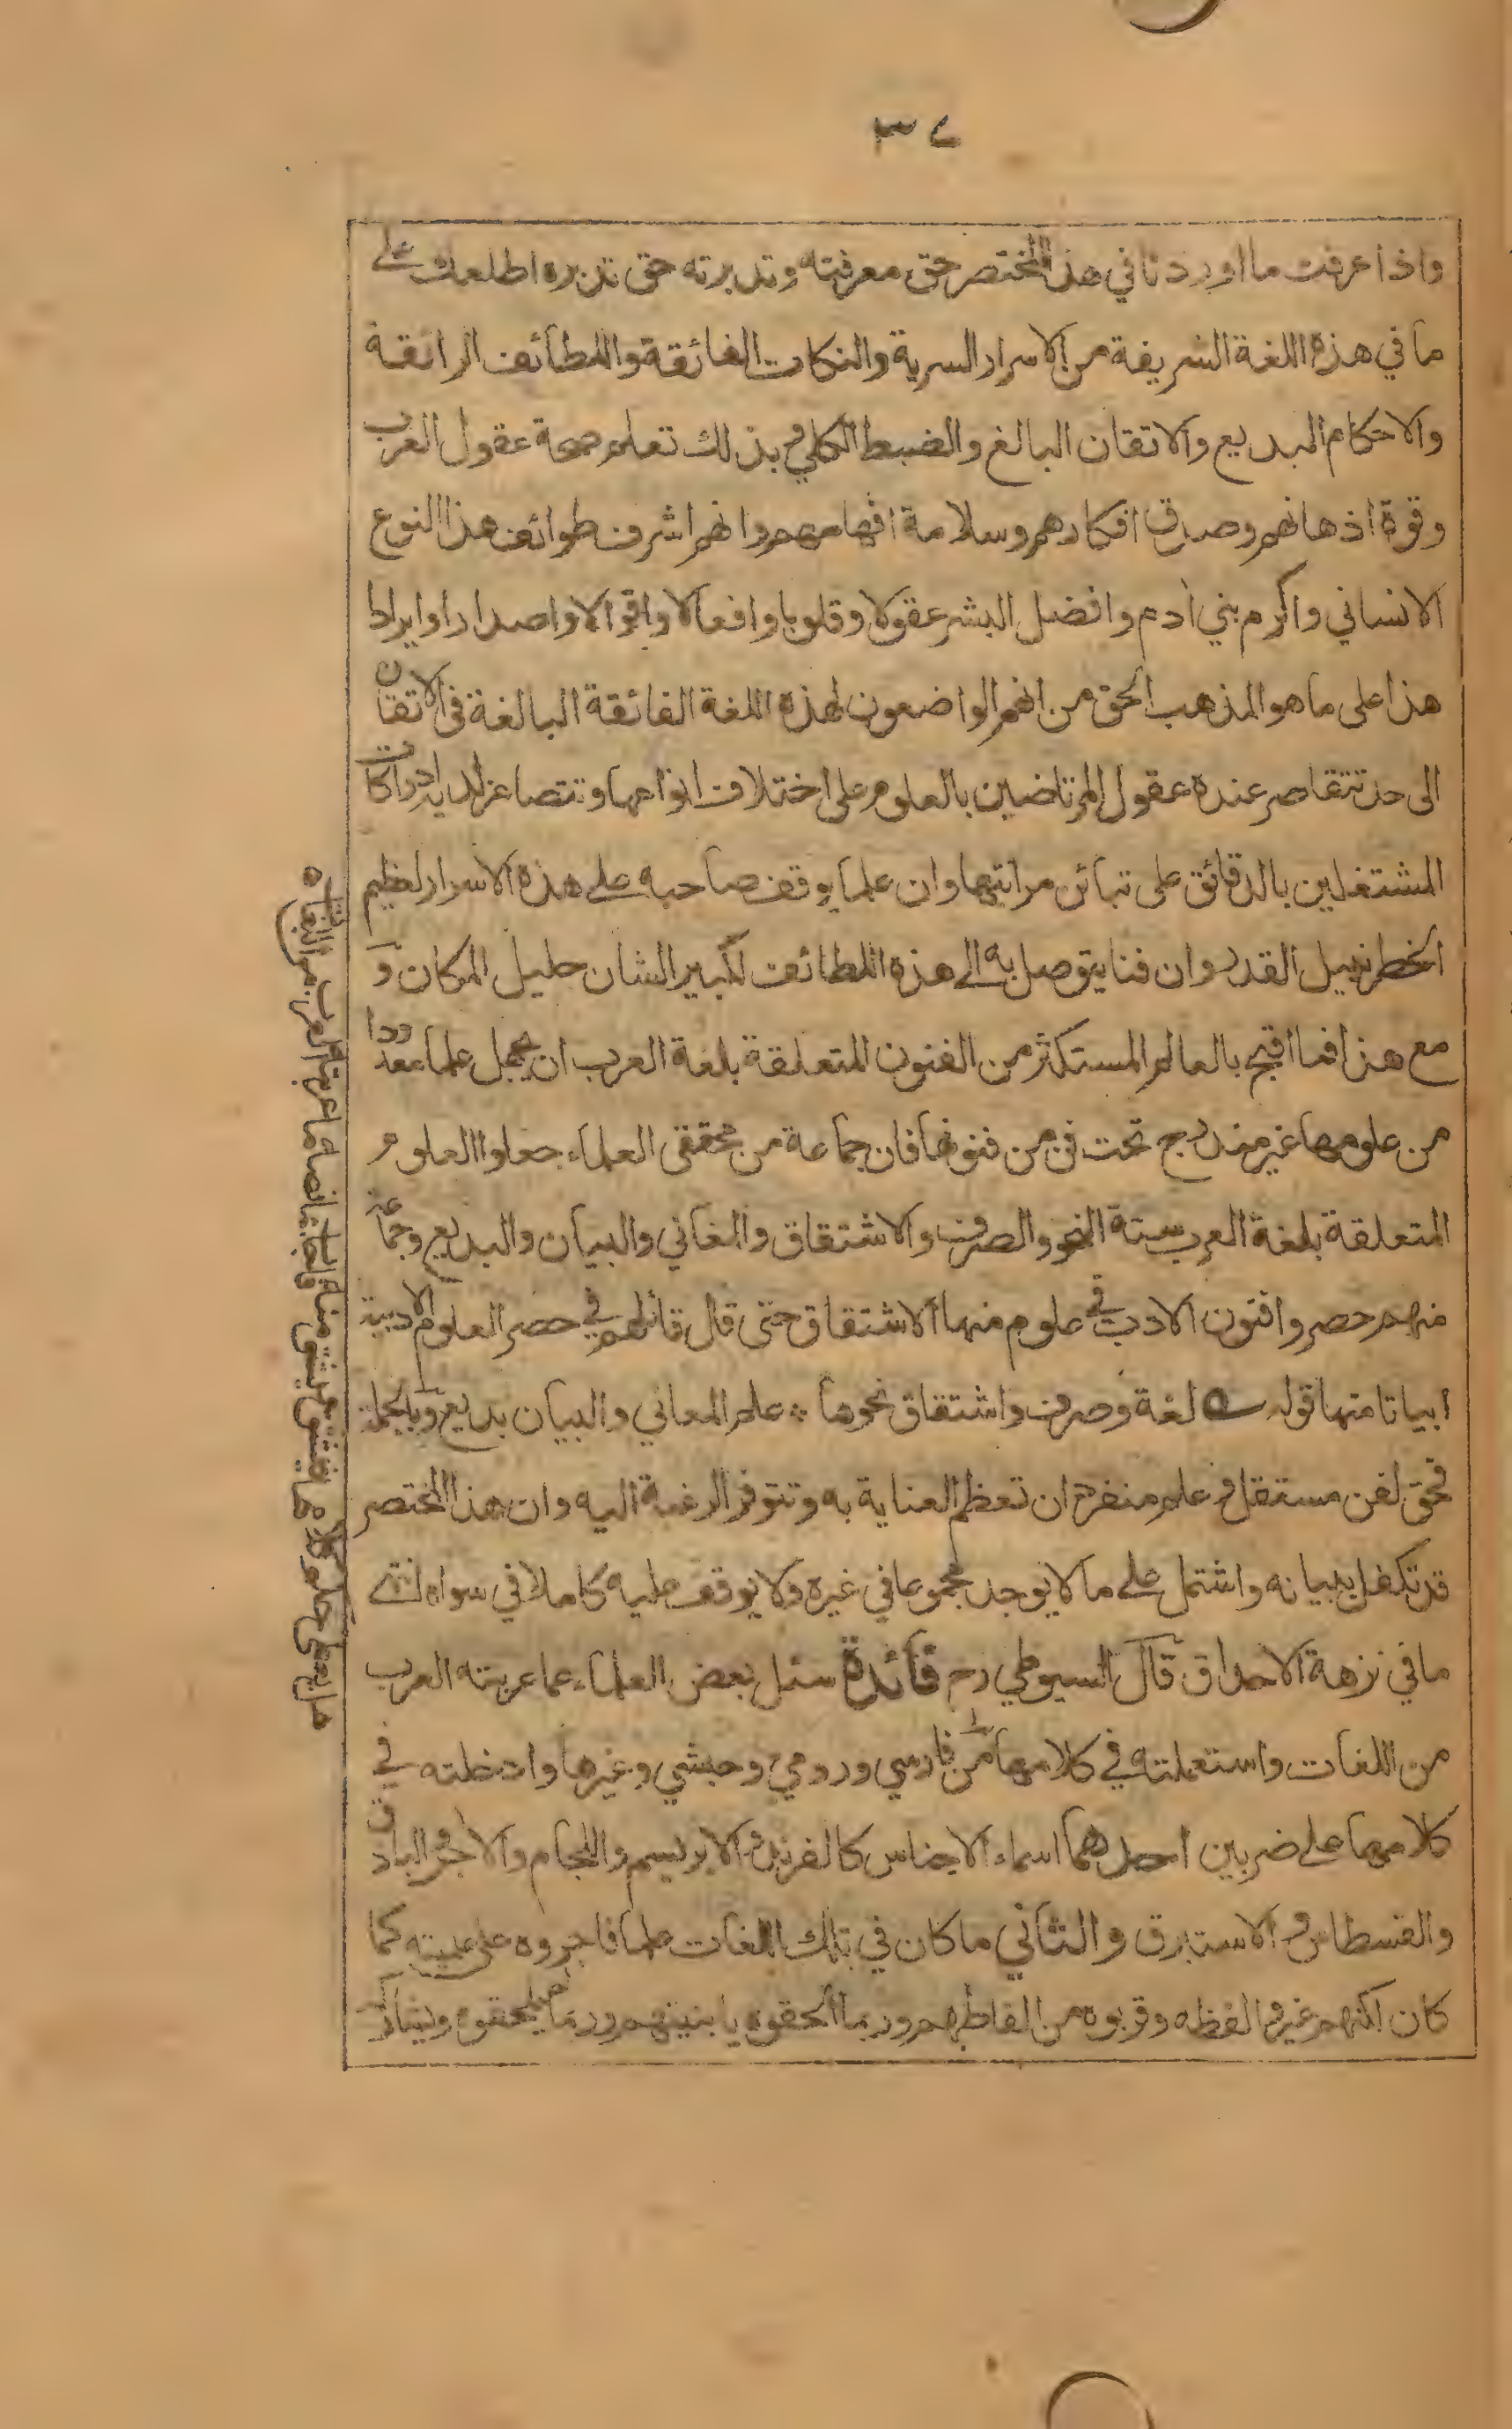 ٣٤
واذا عرفت ما اوردنا في هذا المختصر حق معرفته وتدبرته حق تدبره اطلعك على
ما في هذه اللغة الشريفة من الاسرار السرية والنكات الفائقة واللطائف الرائقة
والاحكام البديع والاتقان البالغ والضبط الكلي وبذلك تعلم صحة عقول العرب
وقوة اذهانهم وصدق افكارهم وسلامة افهامهم وانهم اشرف طوائف هذا النوع
الانساني واكرم بني ادم وافضل البشر عقولا وقلوبا وافعالا واقوالا واصدارا وايرادا
هذا على ما هو المذهب الحق من انهم الواضعون لهذه اللغة الفائقة البالغة في الاتقان
الى حد تتقاصر عنده عقول المرتاضين بالعلوم على اختلاف انواعها وتتصاغر لديه ادراكات
المشتغلين بالدقائق على تبائن مراتبها وان علما يوقف صاحبه على هذه الاسرار لعظيم
الخطر نبيل القدر وان فنا يتوصل به الى هذه اللطائف لكبير الشان جليل المكان و
مع هذا فما اقبح بالعالم المستكثر من الفنون المتعلقة بلغة العرب ان يجهل علما معدودا
من علومها غير مندرج تحت فن من فنونها فان جماعة من محققي العلماء جعلوا العلوم
المتعلقة بلغة العرب ستة النحو والصرف والاشتقاق والمعاني والبيان والبديع وجماعة
منهم حصروا فنون الادب في علوم منها الاشتقاق حتى قال قائلهم في حصر العلوم الادبية
ابياتا منها قوله لغة وصرف واشتقاق نحوها ٭ علم المعاني والبيان بديع وبالجملة
فحق لفن مستقل وعلم منفرد ان تعظم العناية به وتتوفر الرغبة اليه وان هذا المختصر
قد تكفل ببيانه واشتمل على ما لا يوجد مجموعا في غيره ولا يوقف عليه كاملا في سواه انتهى
ما في نزهة الاحداق قال السيوطي رح فائدة سئل بعض العلماء عما عربته العرب
من اللغات واستعملته في كلامها من فارسي ورومي وحبشي وغيرها وادخلته في
كلامها على ضربين احدهما اسماء الاجناس كالفرند والابريسم واللجام والاجر والباذق
والقسطاس والاستبرق والثاني ما كان في تلك اللغات علما فاجروه على علميته كما
كان لكنهم غيروا لفظه وقربوه من الفاظهم وربما الحقوه بابنيتهم وربما لم يلحقوه ويشارك
هل يعطى حكم كلامها فيشتق ويشتق منه فاجاب بما نصه ما عربته العرب من اللغات